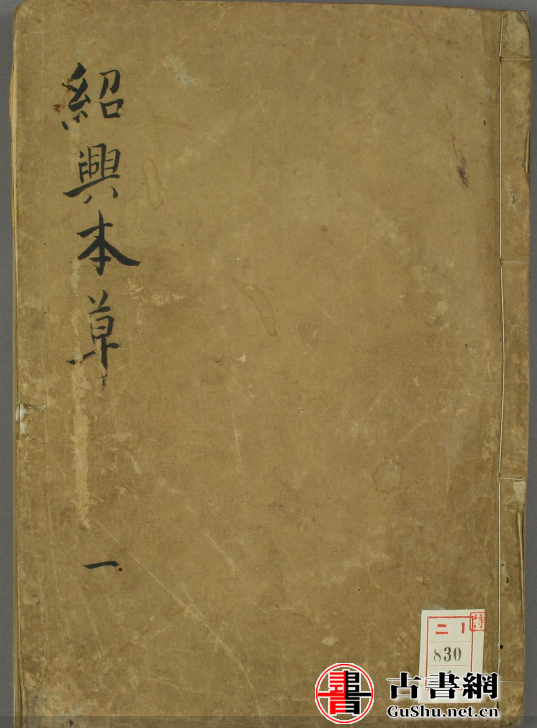 紹興本草
一
特
二 1
830
書
古書網
GuShu.net.cn